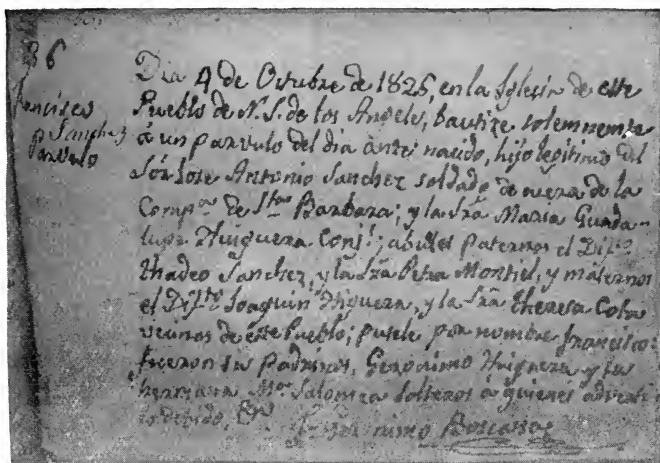 36
Francisco
Sanchez
Parvulo
Dia 4 de Octubre de 1825, en la Iglesia de este
Pueblo de N. S. de los Angeles, bautize solemnemente
a un parvulo del dia antes nacido, hijo legitimo del
Sór Jose Antonio Sanchez soldado de cuera de la
Compª de Sta Barbara; y la Sra Maria Guada-
lupe Higuera Conjs; abuelos paternos el Difto
thadeo Sanchez, y la Sra Petra Montiel, y maternos
el Difto Joaquin Higuera, y la Sra theresa Cota
vecinos de este Pueblo; pusele por nombre francisco:
fueron sus Padrinos, Geronimo Higuera y su
hermana Mª Salomea solteros á quienes adverti
lo debido,
Geronimo Boscana